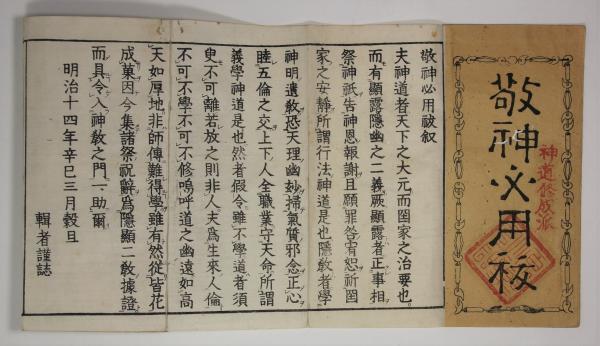 敬神必用祓
神道修成派
敬神必用祓叙
夫神道者天下之大元而圀家之治要也
而有顯露隱幽之二義厥顯露者正事相
祭神祇告神恩報謝且願罪咎宥恕祈圀
家之安静所謂行法神道是也隱教者學
神明遺教恐天理幽妙掃氣質邪念正心
睦五倫之交上下人全職業守天命所謂
義學神道是也然者假令雖不學道者須
臾不可離若放之則非人夫爲生來人倫
不可不學不可不修嗚呼道之幽遠如高
天如厚地非師傳難得學雖有然從皆花
成菓因今集諸祭祝辭爲隱顯二教據證
而具令入神教之門一助爾
明治十四年辛巳三月穀旦
輯者謹誌